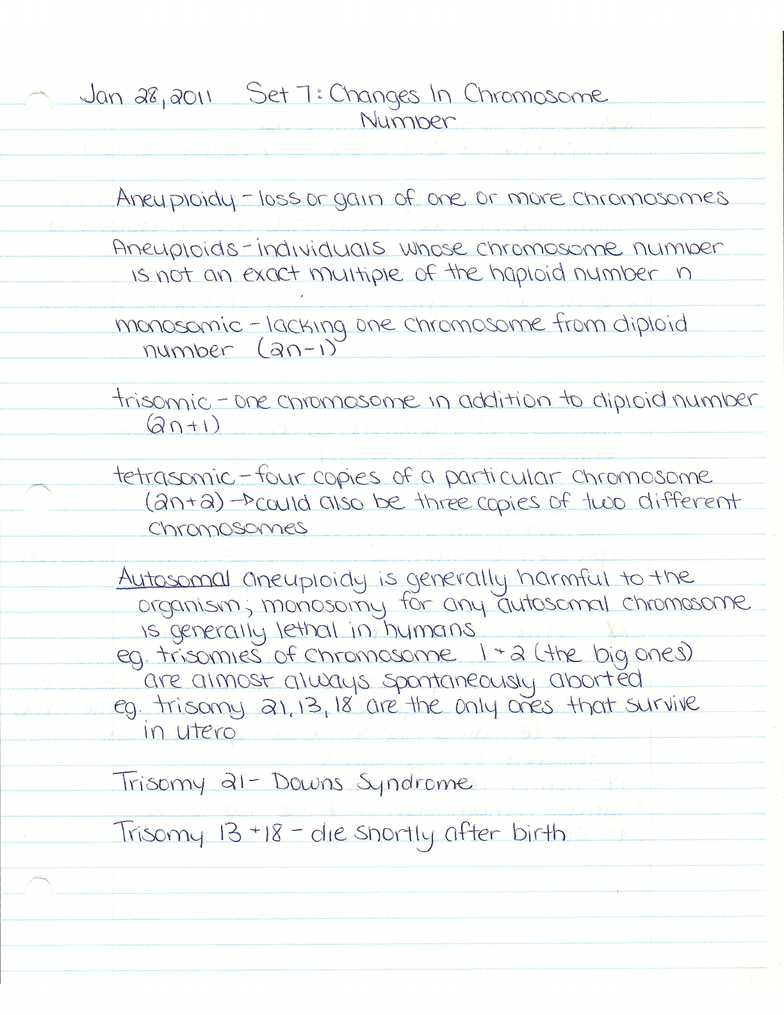 Jan 28, 2011 Set 7: Changes In Chromosome
Number
Aneuploidy - loss or gain of one or more chromosomes
Aneuploids - individuals whose chromosome number
is not an exact multiple of the haploid number n
monosomic - lacking one chromosome from diploid
number (2n-1)
trisomic - one chromosome in addition to diploid number
(2n+1)
tetrasomic - four copies of a particular chromosome
(2n+2) → could also be three copies of two different
chromosomes
Autosomal aneuploidy is generally harmful to the
organism; monosomy for any autosomal chromosome
is generally lethal in humans
eg. trisomies of chromosome 1 + 2 (the big ones)
are almost always spontaneously aborted
eg. trisomy 21, 13, 18 are the only ones that survive
in utero
Trisomy 21 - Downs Syndrome
Trisomy 13 + 18 - die shortly after birth